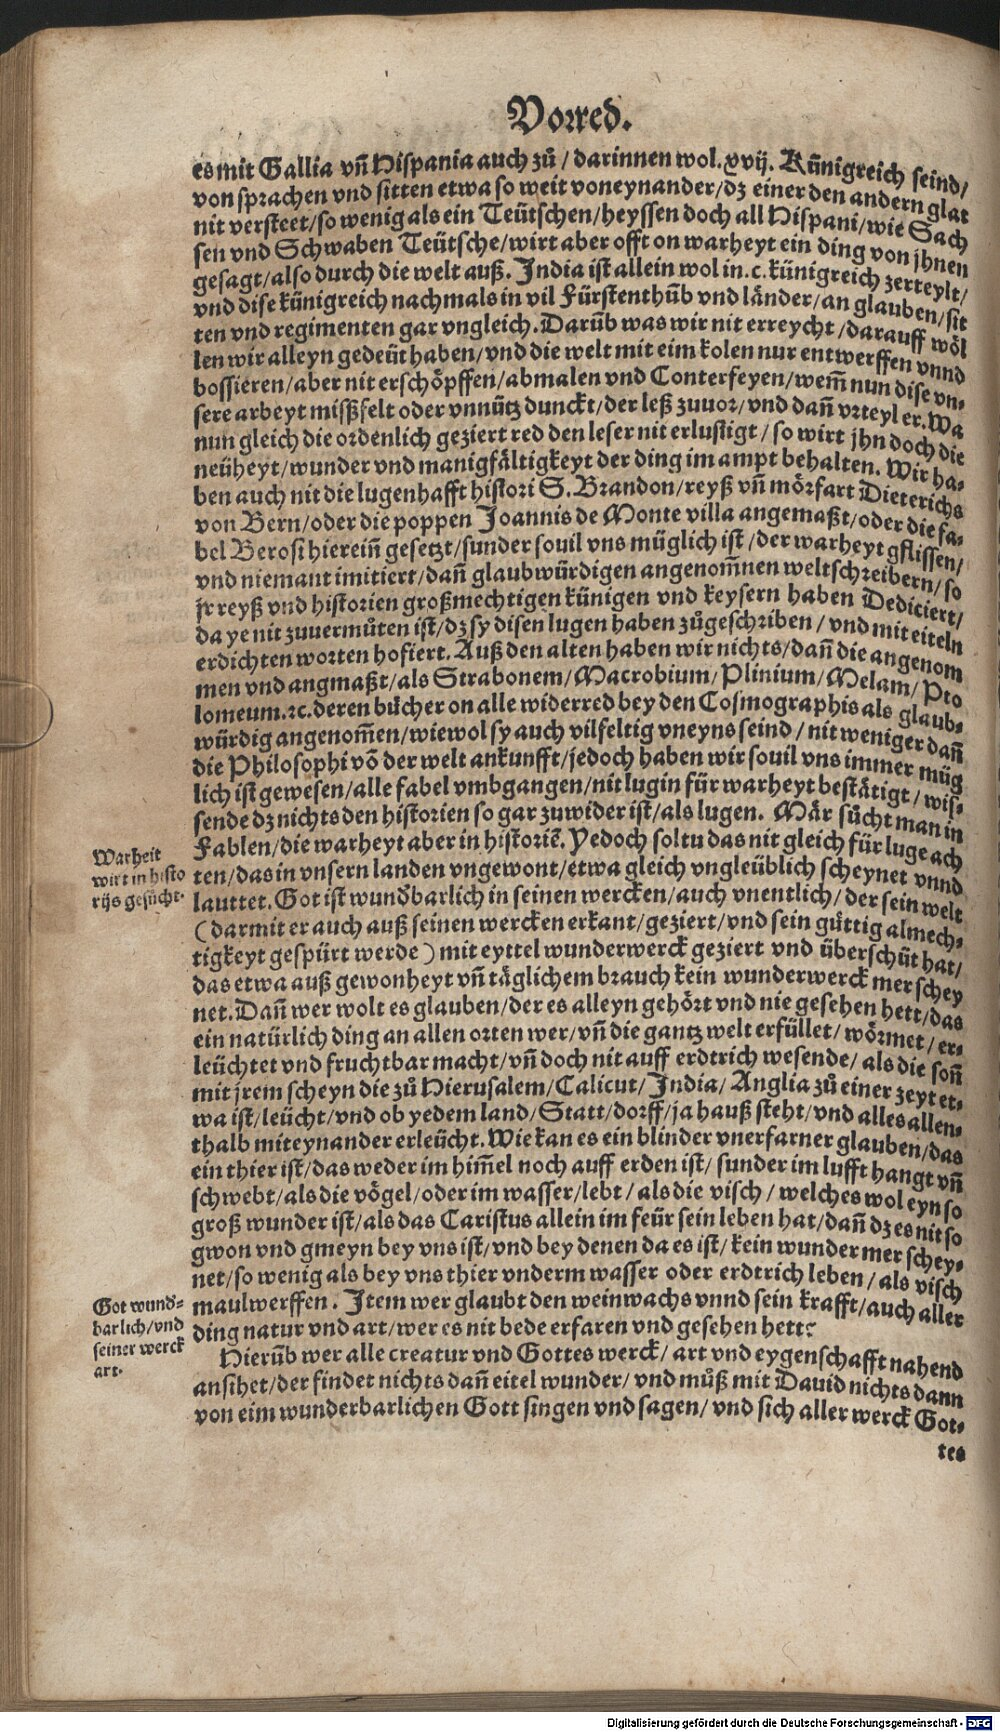 Vorred.
es mit Gallia vñ Hispania auch zů / darinnen wol. xvij. Künigreich seind/
von sprachen vnd sitten etwa so weit voneynander/dz einer den andern glat
nit versteet/so wenig als ein Teütschen/heyssen doch all Hispani/wie Sach
sen vnd Schwaben Teütsche/wirt aber offt on warheyt ein ding von jhnen
gesagt/also durch die welt auß. India ist allein wol in.c.künigreich zerteylt/
vnd dise künigreich nachmals in vil Fürstenthůb vnd länder/an glauben/sit
ten vnd regimenten gar vngleich. Darüb was wir nit erreycht/darauff wöl
len wir alleyn gedeüt haben/vnd die welt mit eim kolen nur entwerffen vnnd
bossieren/aber nit erschöpffen/abmalen vnd Conterfeyen/wem̃ nun dise vn-
sere arbeyt mißfelt oder vnnütz dunckt/der leß zuuor/vnd dañ vrteyl er. Wa
nun gleich die ordenlich geziert red den leser nit erlustigt / so wirt jhn doch die
neüheyt/wunder vnd manigfältigkeyt der ding im ampt behalten. Wir ha-
ben auch nit die lugenhafft histori S. Brandon/reyß vñ mörfart Dieterichs
von Bern/oder die poppen Joannis de Monte villa angemaßt/oder die fa-
bel Berosi hiereiñ gesetzt/sunder souil vns müglich ist/der warheyt gflissen/
vnd niemant imitiert/dañ glaubwürdigen angenom̃nen weltschreibern/so
jr reyß vnd historien großmechtigen künigen vnd keysern haben Dediciert/
da ye nit zuuermůten ist/dz sy disen lugen haben zůgeschriben / vnd mit eiteln
erdichten worten hofiert. Auß den alten haben wir nichts/dañ die angenom
men vnd angmaßt/als Strabonem/Macrobium/Plinium/Melam/Pto
lomeum.ꝛc.deren bücher on alle widerred bey den Cosmographis als glaub-
würdig angenom̃en/wiewol sy auch vilfeltig vneyns seind / nit weniger dañ
die Philosophi võ der welt ankunfft/jedoch haben wir souil vns immer müg
lich ist gewesen/alle fabel vmbgangen/nit lugin für warheyt bestätigt / wis-
sende dz nichts den historien so gar zuwider ist/als lugen. Mär sůcht man in
Fablen/die warheyt aber in historiẽ. Yedoch soltu das nit gleich für luge ach
Warheit
wirt in histo
rijs gesůcht.
ten/das in vnsern landen vngewont/etwa gleich vngleüblich scheynet vnnd
lauttet. Got ist wundbarlich in seinen wercken/auch vnentlich/der sein welt
(darmit er auch auß seinen wercken erkant/geziert/vnd sein güttig almech-
tigkeyt gespürt werde) mit eyttel wunderwerck geziert vnd überschüt hat/
das etwa auß gewonheyt vñ täglichem brauch kein wunderwerck mer schey
net. Dañ wer wolt es glauben/der es alleyn gehört vnd nie gesehen hett/das
ein natürlich ding an allen orten wer/vñ die gantz welt erfüllet/wörmet/er-
leüchtet vnd fruchtbar macht/vñ doch nit auff erdtrich wesende/als die soñ
mit jrem scheyn die zů Hierusalem/Calicut/India/Anglia zů einer zeyt et-
wa ist/leücht/vnd ob yedem land/Statt/dorff/ja hauß steht/vnd alles allen-
thalb miteynander erleücht. Wie kan es ein blinder vnerfarner glauben/das
ein thier ist/das weder im him̃el noch auff erden ist/ sunder im lufft hangt vñ
schwebt/als die vögel/oder im wasser/lebt/als die visch / welches wol eyn so
groß wunder ist/als das Caristus allein im feür sein leben hat/dañ dz es nit so
gwon vnd gmeyn bey vns ist/vnd bey denen da es ist/kein wunder mer schey-
net/so wenig als bey vns thier vnderm wasser oder erdtrich leben/als visch
Got wund-
barlich/vnd
seiner werck
art.
maulwerffen. Item wer glaubt den weinwachs vnnd sein krafft/auch aller
ding natur vnd art/wer es nit bede erfaren vnd gesehen hett?
Hierüb wer alle creatur vnd Gottes werck/ art vnd eygenschafft nahend
ansihet/der findet nichts dañ eitel wunder/ vnd můß mit Dauid nichts dann
von eim wunderbarlichen Gott singen vnd sagen/ vnd sich aller werck Got-
tes
Digitalisierung gefördert durch die Deutsche Forschungsgemeinschaft - DFG